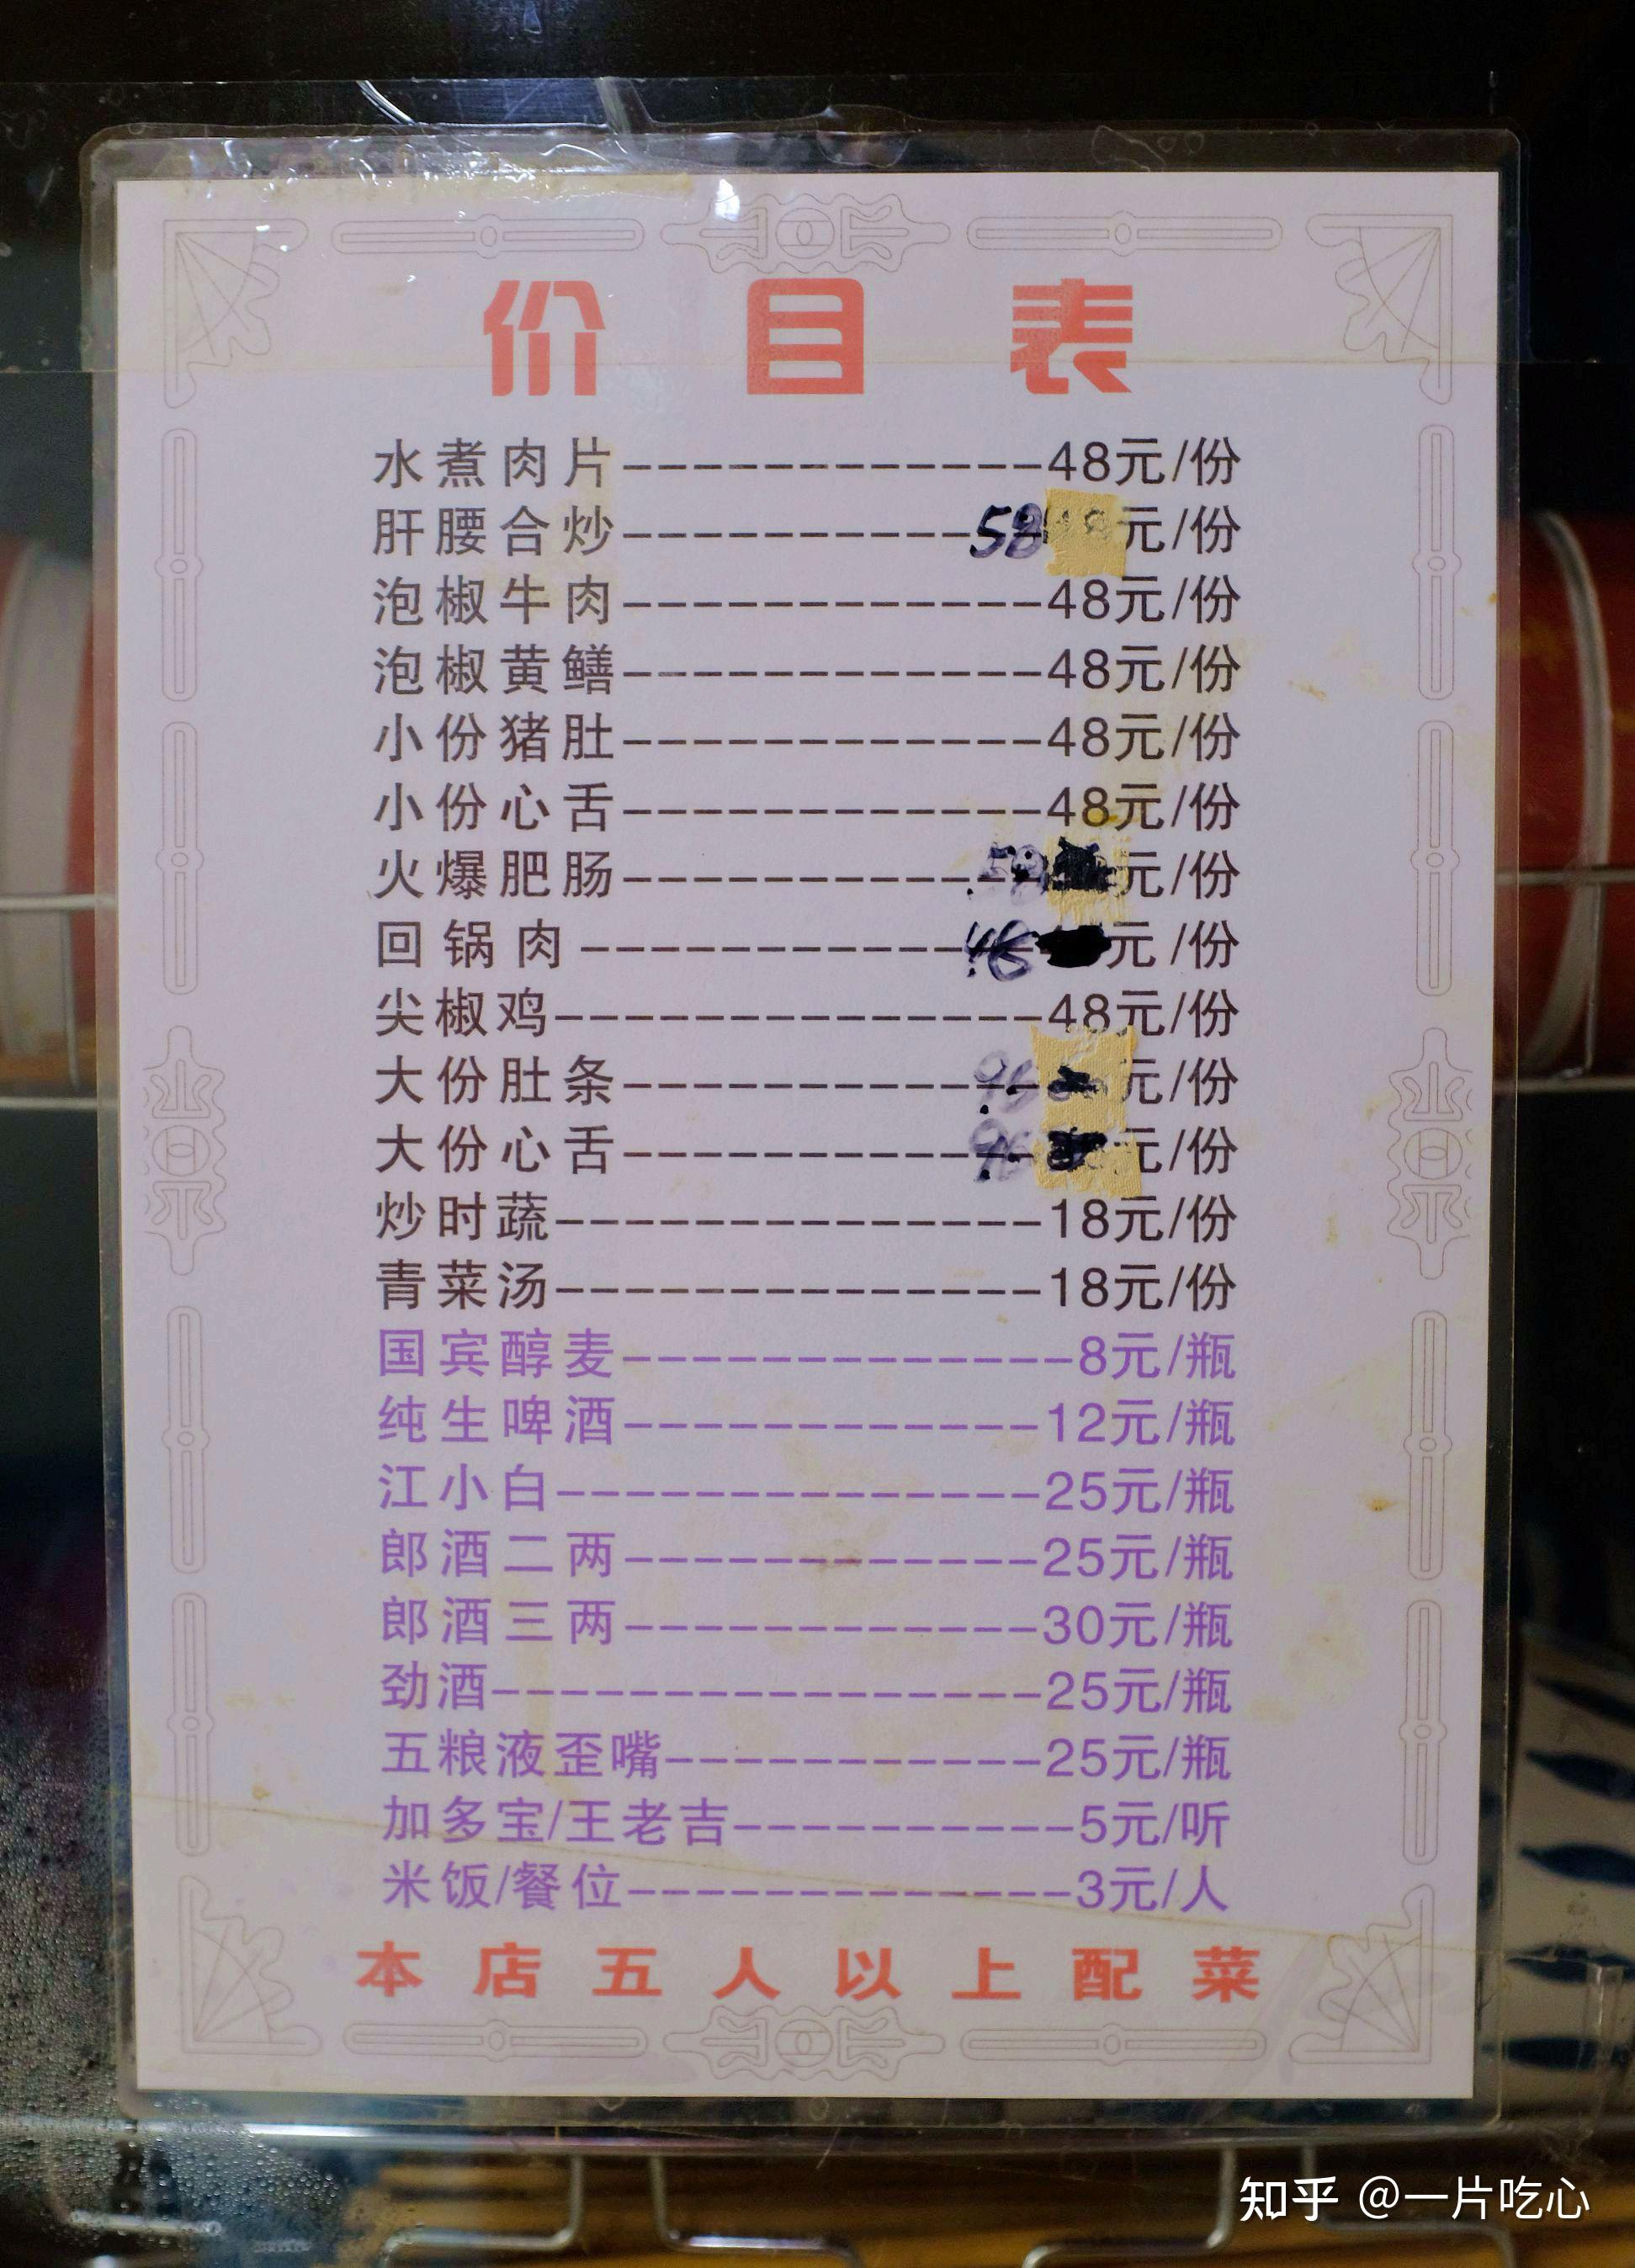 价目表
水煮肉片-------------48元/份
肝腰合炒-----------58元/份
泡椒牛肉-------------48元/份
泡椒黄鳝-------------48元/份
小份猪肚-------------48元/份
小份心舌-------------48元/份
火爆肥肠-----------元/份
回锅肉------------48元/份
尖椒鸡---------------48元/份
大份肚条-----------96元/份
大份心舌-----------96元/份
炒时蔬---------------18元/份
青菜汤---------------18元/份
国宾醇麦--------------8元/瓶
纯生啤酒-------------12元/瓶
江小白---------------25元/瓶
郎酒二两-------------25元/瓶
郎酒三两-------------30元/瓶
劲酒-----------------25元/瓶
五粮液歪嘴-----------25元/瓶
加多宝/王老吉----------5元/听
米饭/餐位-------------3元/人
本店五人以上配菜
知乎 @一片吃心